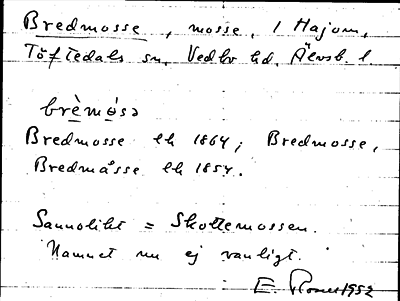 Bredmosse, mosse, i Hajom,
Töftedals sn, Vedbo hd, Älvsb. l.
brèmós​ə
Bredmosse lh 1864; Bredmosse,
Bredmåsse lh 1854.
Sannolikt = Skottemossen.
Namnet nu ej vanligt.
E. 1952